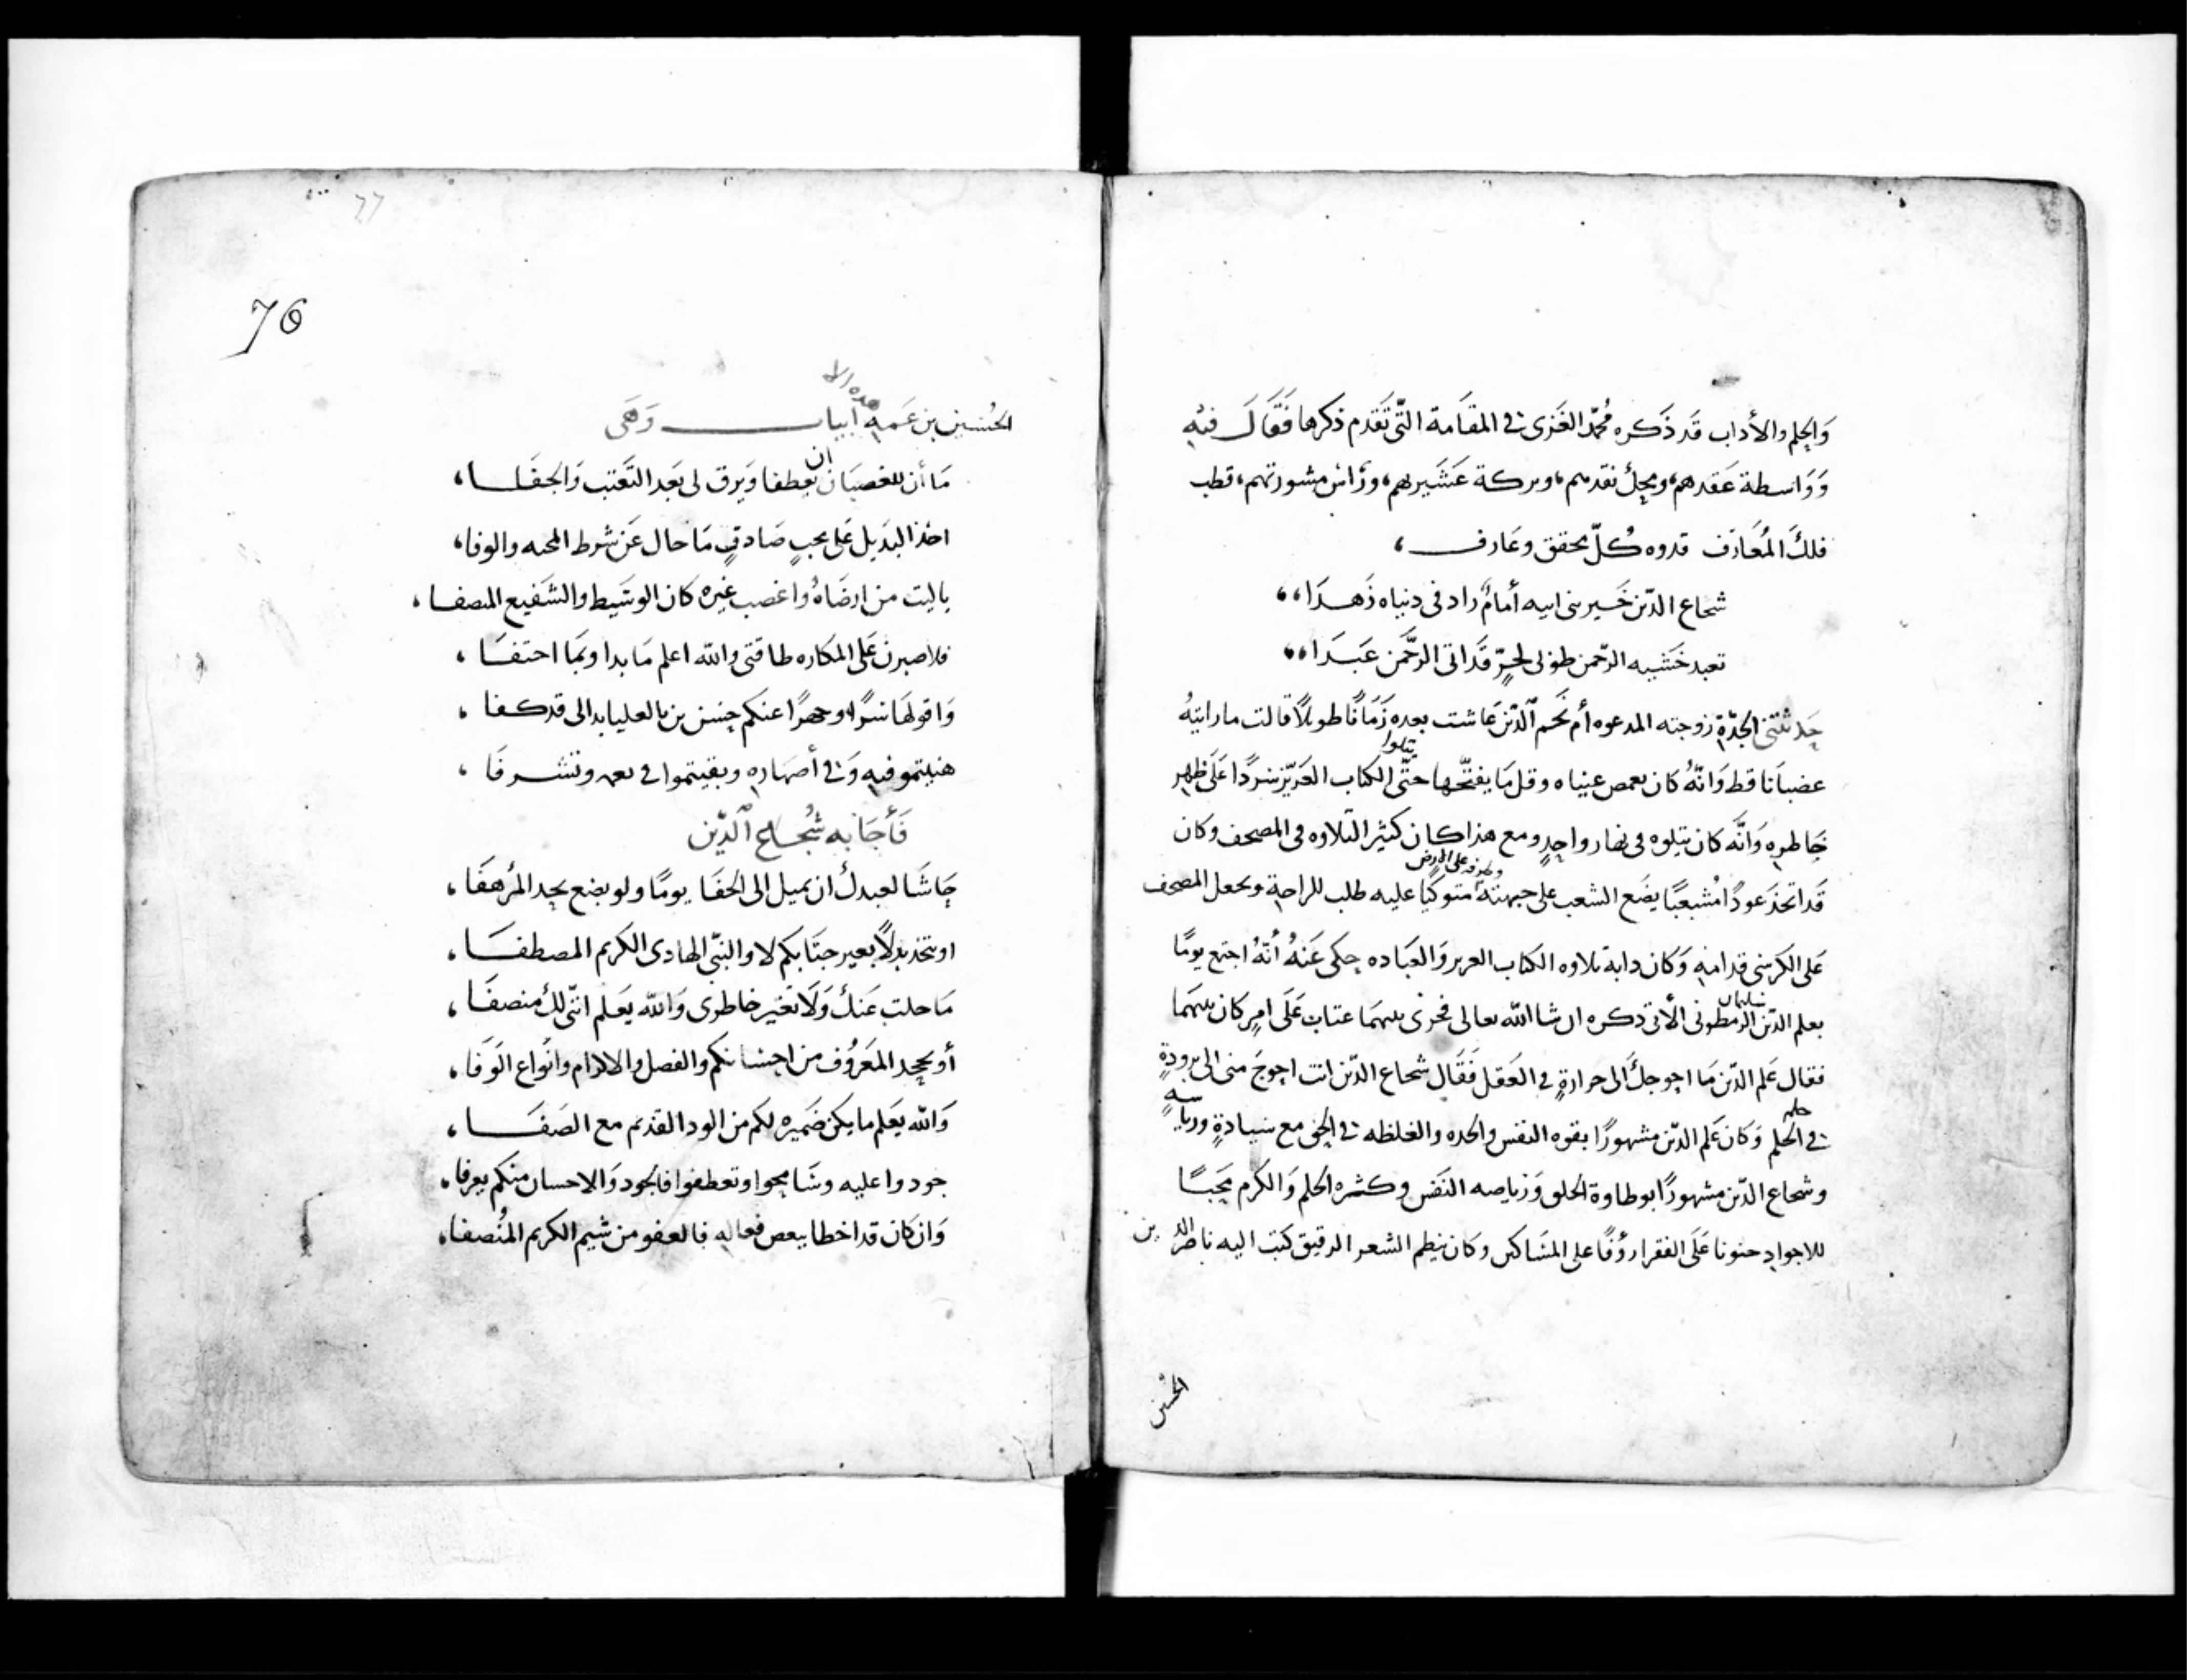 وَالحِلم والأداب قَد ذَكَره مُحمّد الغَزى فى المقَامة التّى تَقَدم ذكرها فَقَالَ فيه
وَوَاسطة عَقدهم، ومحِلّ نقدهم، وبركة عَشَيرهم، ورَائس مشورتهم، قطب
فلكَ المُعَارَف قدوه كُلّ محقق وعَارف،
شجاع الدّين خَير بنى ابيه أمامٌ زاد فى دنياه زَهدَا،،
تعبد خَشيه الرّحمن طوبى لحِرّ قَد اتى الرّحَمن عَبَدَا،،
حَدثتنى الجدّة زوجته المدعوه أم نَجم الّدين عَاشت بعده زَمَانًا طويلاً قالت ما رايتهُ
غضبانا قط وَانّهُ كان يغمص عيناه وقل مَا يفتّحها حتّى يتلوا الكتاب العَزيز سردًا عَلَى ظهر
خَاطره وَانَّه كان يتلوه فى نهار واحدٍ ومع هذا كان كثير التلاوه فى المصحف وكان
قَد اتخذ عودًا مُشعبًا يضَع الشعب على جبهته وطرفه على الارض متوكيًا عليه طلب للراحة ويجعل المصحف
عَلى الكرسى قدامه وَكان دابة تلاوه الكتاب العزيز وَالعبَاده حِكى عَنهُ أنّهُ اجتمع يومًا
بعلم الدّين سليمان الرمطونى الأتى ذكره ان شا الله تعالى فجرى بينهمَا عتاب عَلَى امرٍ كان بينهَما
فقال عَلم الدّين مَا احوجكَ الى حرارةٍ فى العَقل فَقَال شجاع الدّين انت احوجَ منى الى برودةٍ
فى الحلم وَكان عَلم الدّين مشهورًا بقوه النفس والحده والغلظه فى الحق مع سيادةٍ ورياسةٍ
وشجاع الدّين مشهورًا بوطاوة الخلق وَرياصه النَفس وكثره الحلم وَالكرم مُحَبًا
للاجوادِ حنونا عَلَى الفقرا رؤفًا على المسَاكين وكان ينظم الشعر الرقيق كتبَ اليه ناصر الدين بن
الحُسين
76
الحُسين بن عَمه هذه الا ابيات وَهَى
مَا أن للغصبَان ان يعطفا وَيرق لى بَعد التَعتب وَالجفَا،
اخذ البَديل عَلى محبٍ صَادقٍ مَا حال عَن شرط المحبه والوفا،
ياليت من ارضَاهُ واغصب غيره كان الوسَيط والشَفيع المنصفا،
فلاصبرن عَلى المكاره طاقتى والله اعلم مَا بدا وبمَا اختفَا،
وَاقولهَا سرًا وجهرًا عنكم حِسن بن بالعليا بدا لى قد كفا،
هنيتمو فيه وَفى أصهَاره وبقيتموا فى نعمه وتشرفَا،
فَأجَابه شُجاع الّدين
حَاشَا لعبدك ان يميل الى الجفَا يومًا ولو بضع بحِد المُرهفَا،
او يتخذ بدلاً بغير جنَابكم لا والنبّى الهادى الكريم المصطفَا،
مَا حلت عَنكَ وَلَا تَغير خاطرى وَالله يعَلم انّنى لكَ منصفَا،
أو يجحِد المَعَروُف من احِسانكم والفصل والاكرام وانَواع الوَفَا،
وَالله يَعَلم مَا يكن ضَميره لكم من الود القدَيم مع الصَفَا،
جودوا عليه وسَامحِوا وتعطفوا فالجود وَالاحسان منكم يعرفا،
وَان كان قد اخطا ببعص فعاله فالعفو من شيم الكريم المُنصفا،